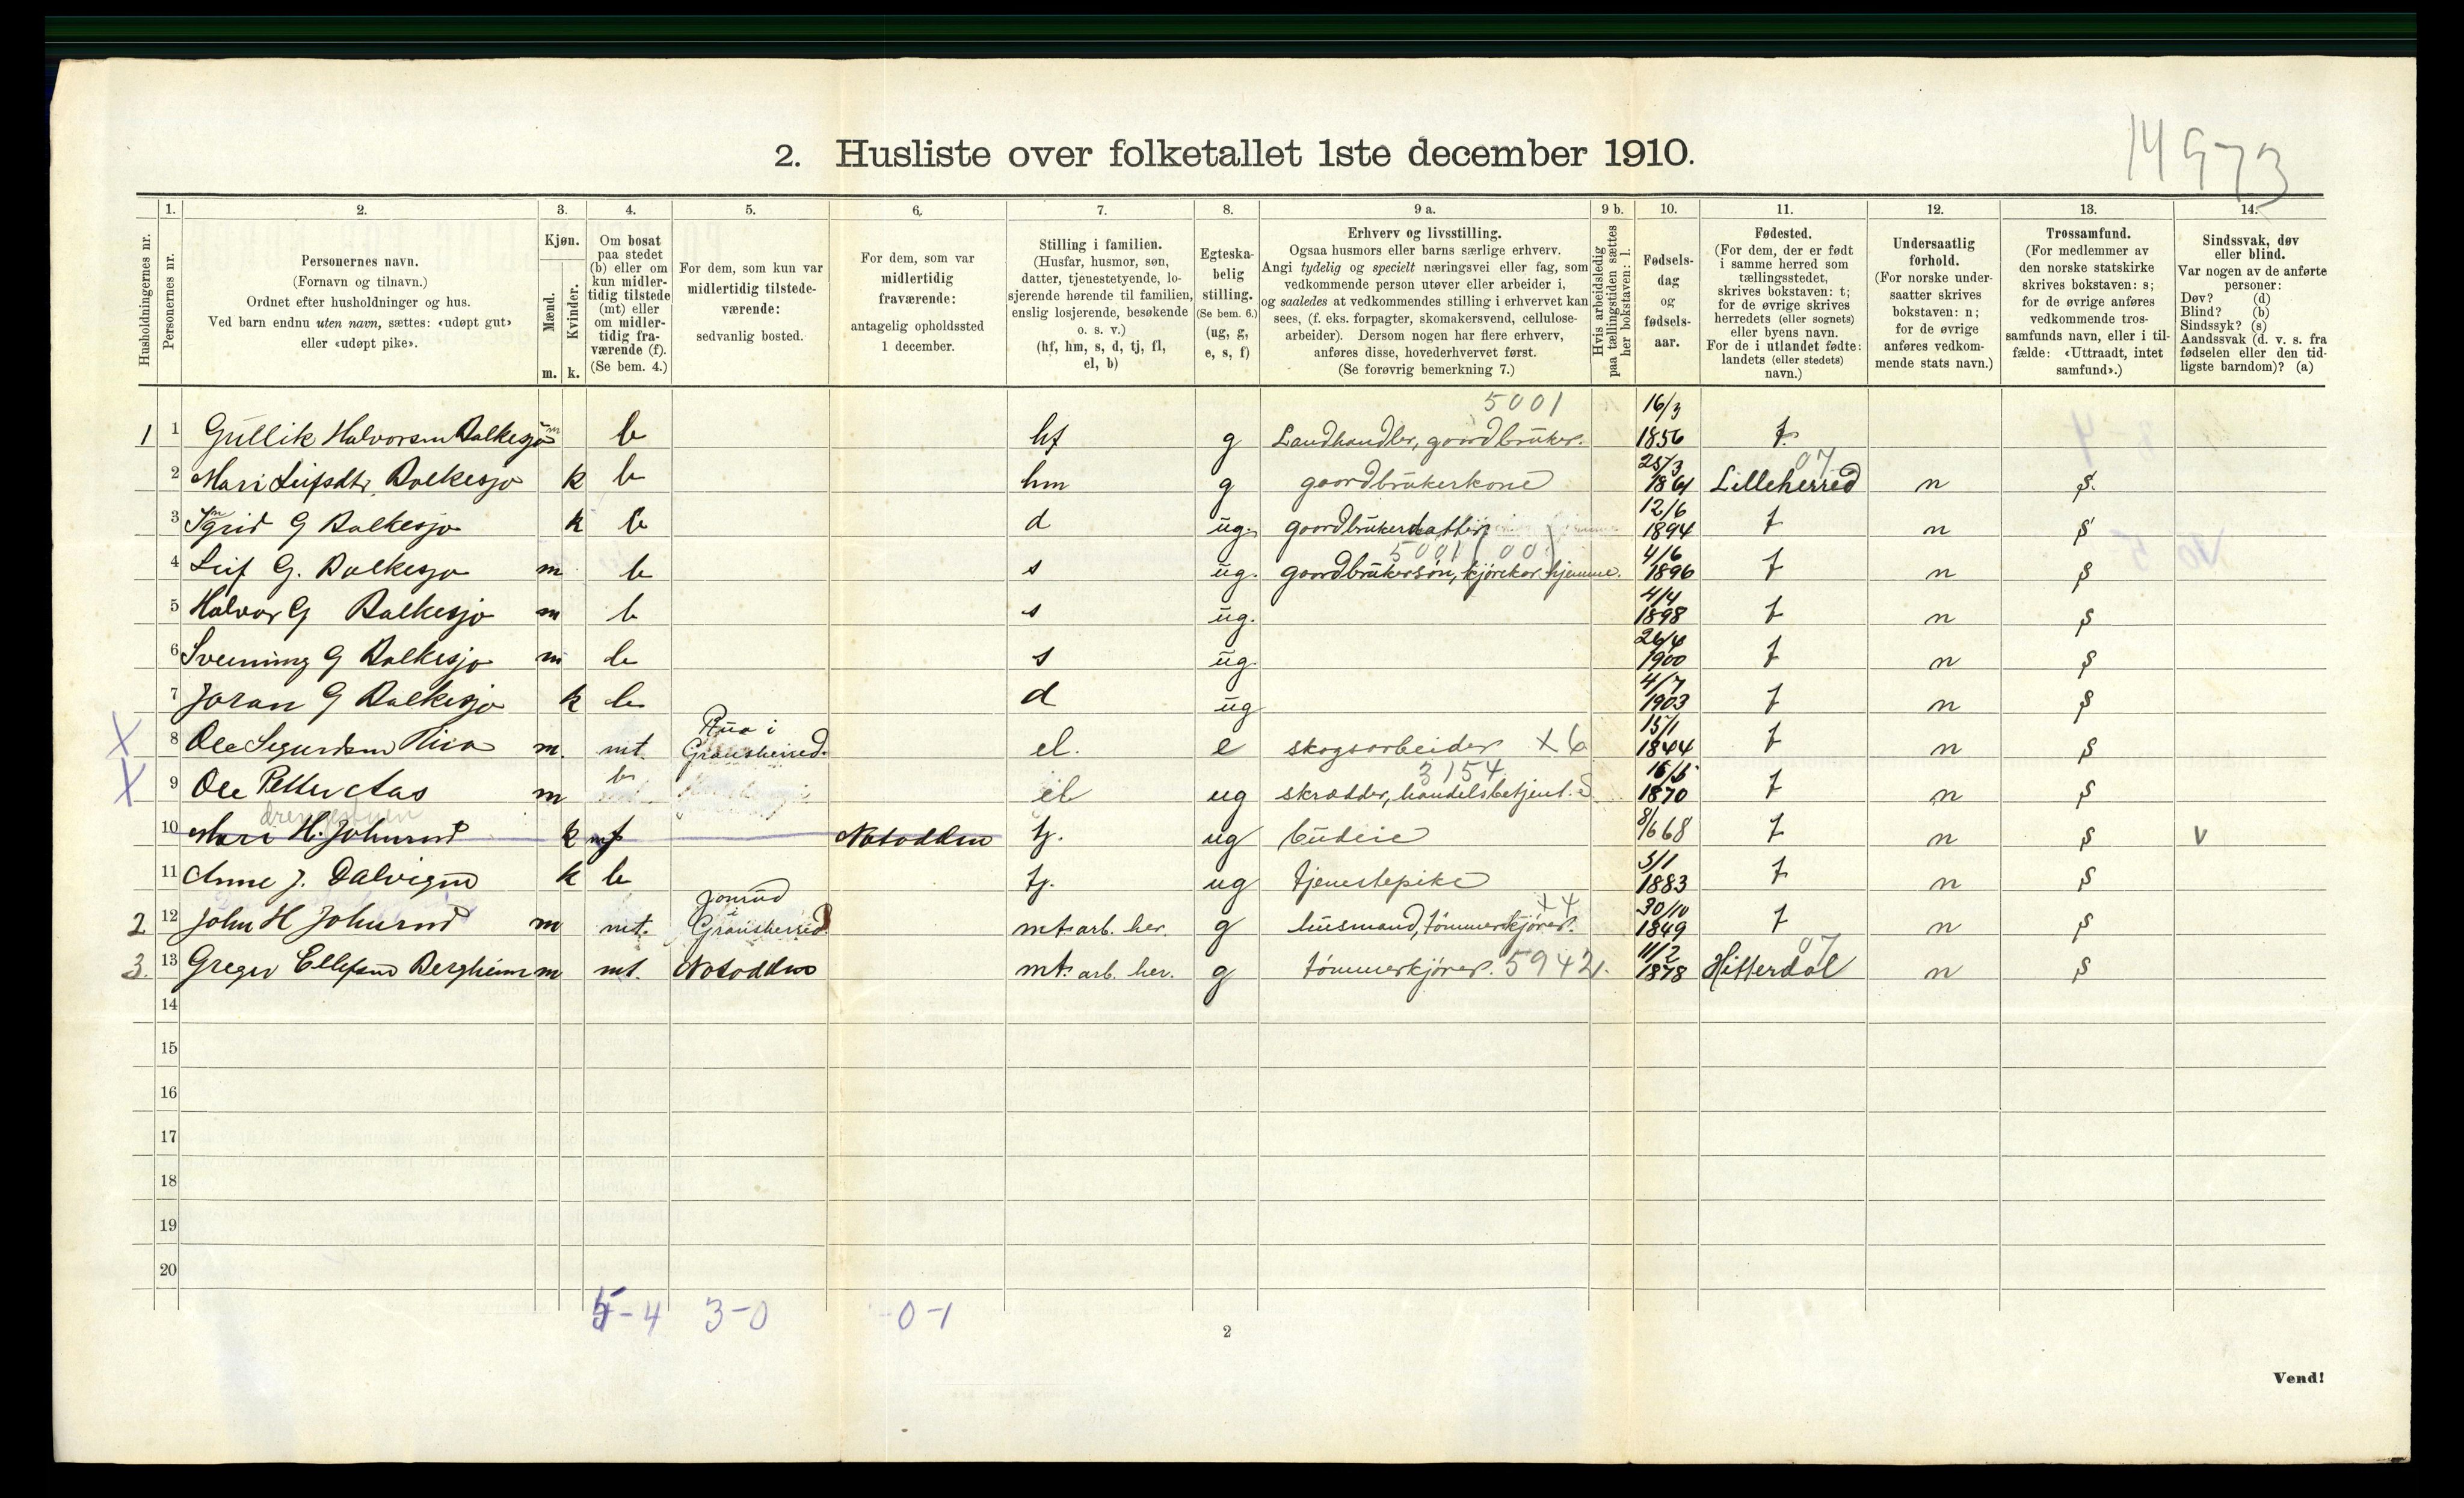 14973
2. Husliste over folketallet 1ste december 1910.
Husholdningernes nr.
1. Personernes nr.
2. Personernes navn.
(Fornavn og tilnavn.)
Ordnet efter husholdninger og hus.
Ved barn endnu uten navn, sættes: «udøpt gut»
eller «udøpt pike».
3. Kjøn.
Mænd. m.
Kvinder. k.
4. Om bosat
paa stedet
(b) eller om
kun midler-
tidig tilstede
(mt) eller
om midler-
tidig fra-
værende (f).
(Se bem. 4.)
5. For dem, som kun var
midlertidig tilstede-
værende:
sedvanlig bosted.
6. For dem, som var
midlertidig
fraværende:
antagelig opholdssted
1 december.
7. Stilling i familien.
(Husfar, husmor, søn,
datter, tjenestetyende, lo-
sjerende hørende til familien,
enslig losjerende, besøkende
o. s. v.)
(hf, hm, s, d, tj, fl,
el, b)
8. Egteska-
belig
stilling.
(Se bem. 6.)
(ug, g,
e, s, f)
9 a. Erhverv og livsstilling.
Ogsaa husmors eller barns særlige erhverv.
Angi tydelig og specielt næringsvei eller fag, som
vedkommende person utøver eller arbeider i,
og saaledes at vedkommendes stilling i erhvervet kan
sees, (f. eks. forpagter, skomakersvend, cellulose-
arbeider). Dersom nogen har flere erhverv,
anføres disse, hovederhvervet først.
(Se forøvrig bemerkning 7.)
9 b. Hvis arbeidsledig
paa tællingstiden sættes
her bokstaven: l.
10. Fødsels-
dag
og
fødsels-
aar.
11. Fødested.
(For dem, der er født
i samme herred som
tællingsstedet,
skrives bokstaven: t;
for de øvrige skrives
herredets (eller sognets)
eller byens navn.
For de i utlandet fødte:
landets (eller stedets)
navn.)
12. Undersaatlig
forhold.
(For norske under-
saatter skrives
bokstaven: n;
for de øvrige
anføres vedkom-
mende stats navn.)
13. Trossamfund.
(For medlemmer av
den norske statskirke
skrives bokstaven: s;
for de øvrige anføres
vedkommende tros-
samfunds navn, eller i til-
fælde: «Uttraadt, intet
samfund».)
14. Sindssvak, døv
eller blind.
Var nogen av de anførte
personer:
Døv? (d)
Blind? (b)
Sindssyk? (s)
Aandssvak (d. v. s. fra
fødselen eller den tid-
ligste barndom)? (a)
5001
1 1 Gullik Halvorsen Bolkesjø m b hf g Landhandler, gaardbruker. 16/3 1856 t.
07
2 Mari Leifsdtr. Bolkesjo k b hm g gaardbrukerkone 25/3 1861 Lilleherred n s.
3 Ingrid G Bolkesjo k b d ug. gaardbrukerdatter 12/6 1894 t n s
5001 (00)
4 Leif G. Bolkesjo m b s ug. gaardbrukersøn, kjørekar hjemme. 4/6 1896 t n s
5 Halvor G Bolkesjo m b s ug. 4/4 1898 t n s
6 Sveinung G Bolkesjo m b s ug. 1900 t n s
7 Joran G Bolkesjo k b d ug 4/7 1903 t n s
X 8 Ole Sigurdsen Rua m. mt. Rua i Gransherred. el. e skogsarbeider X6 15/1 1844 t n s
3154
X 9 Ole Petter Aas m b el ug skrædder, handelsbetjent. 1870 t n s
10 Mari H. Johnsrud k f Notodden tj. ug budeie 8/6 68 t n s v
11 Anne J. Dalvigen k b tj. ug tjenestepike 3/1 1883 t n s
X4
2 12 John H Johnsrud m mt. i Gransherred. mt: arb. her. g husmand, tømmerkjører. 30/10 1849 t n s
07
3. 13 Greger Ellefsen Bergheim m mt. Notodden mt: arb. her. g tømmerkjører. 5942 11/2 1878 Hitterdal n s
14
15
16
17
18
19
20
5-4 3-0 -0-1
2
Vend!